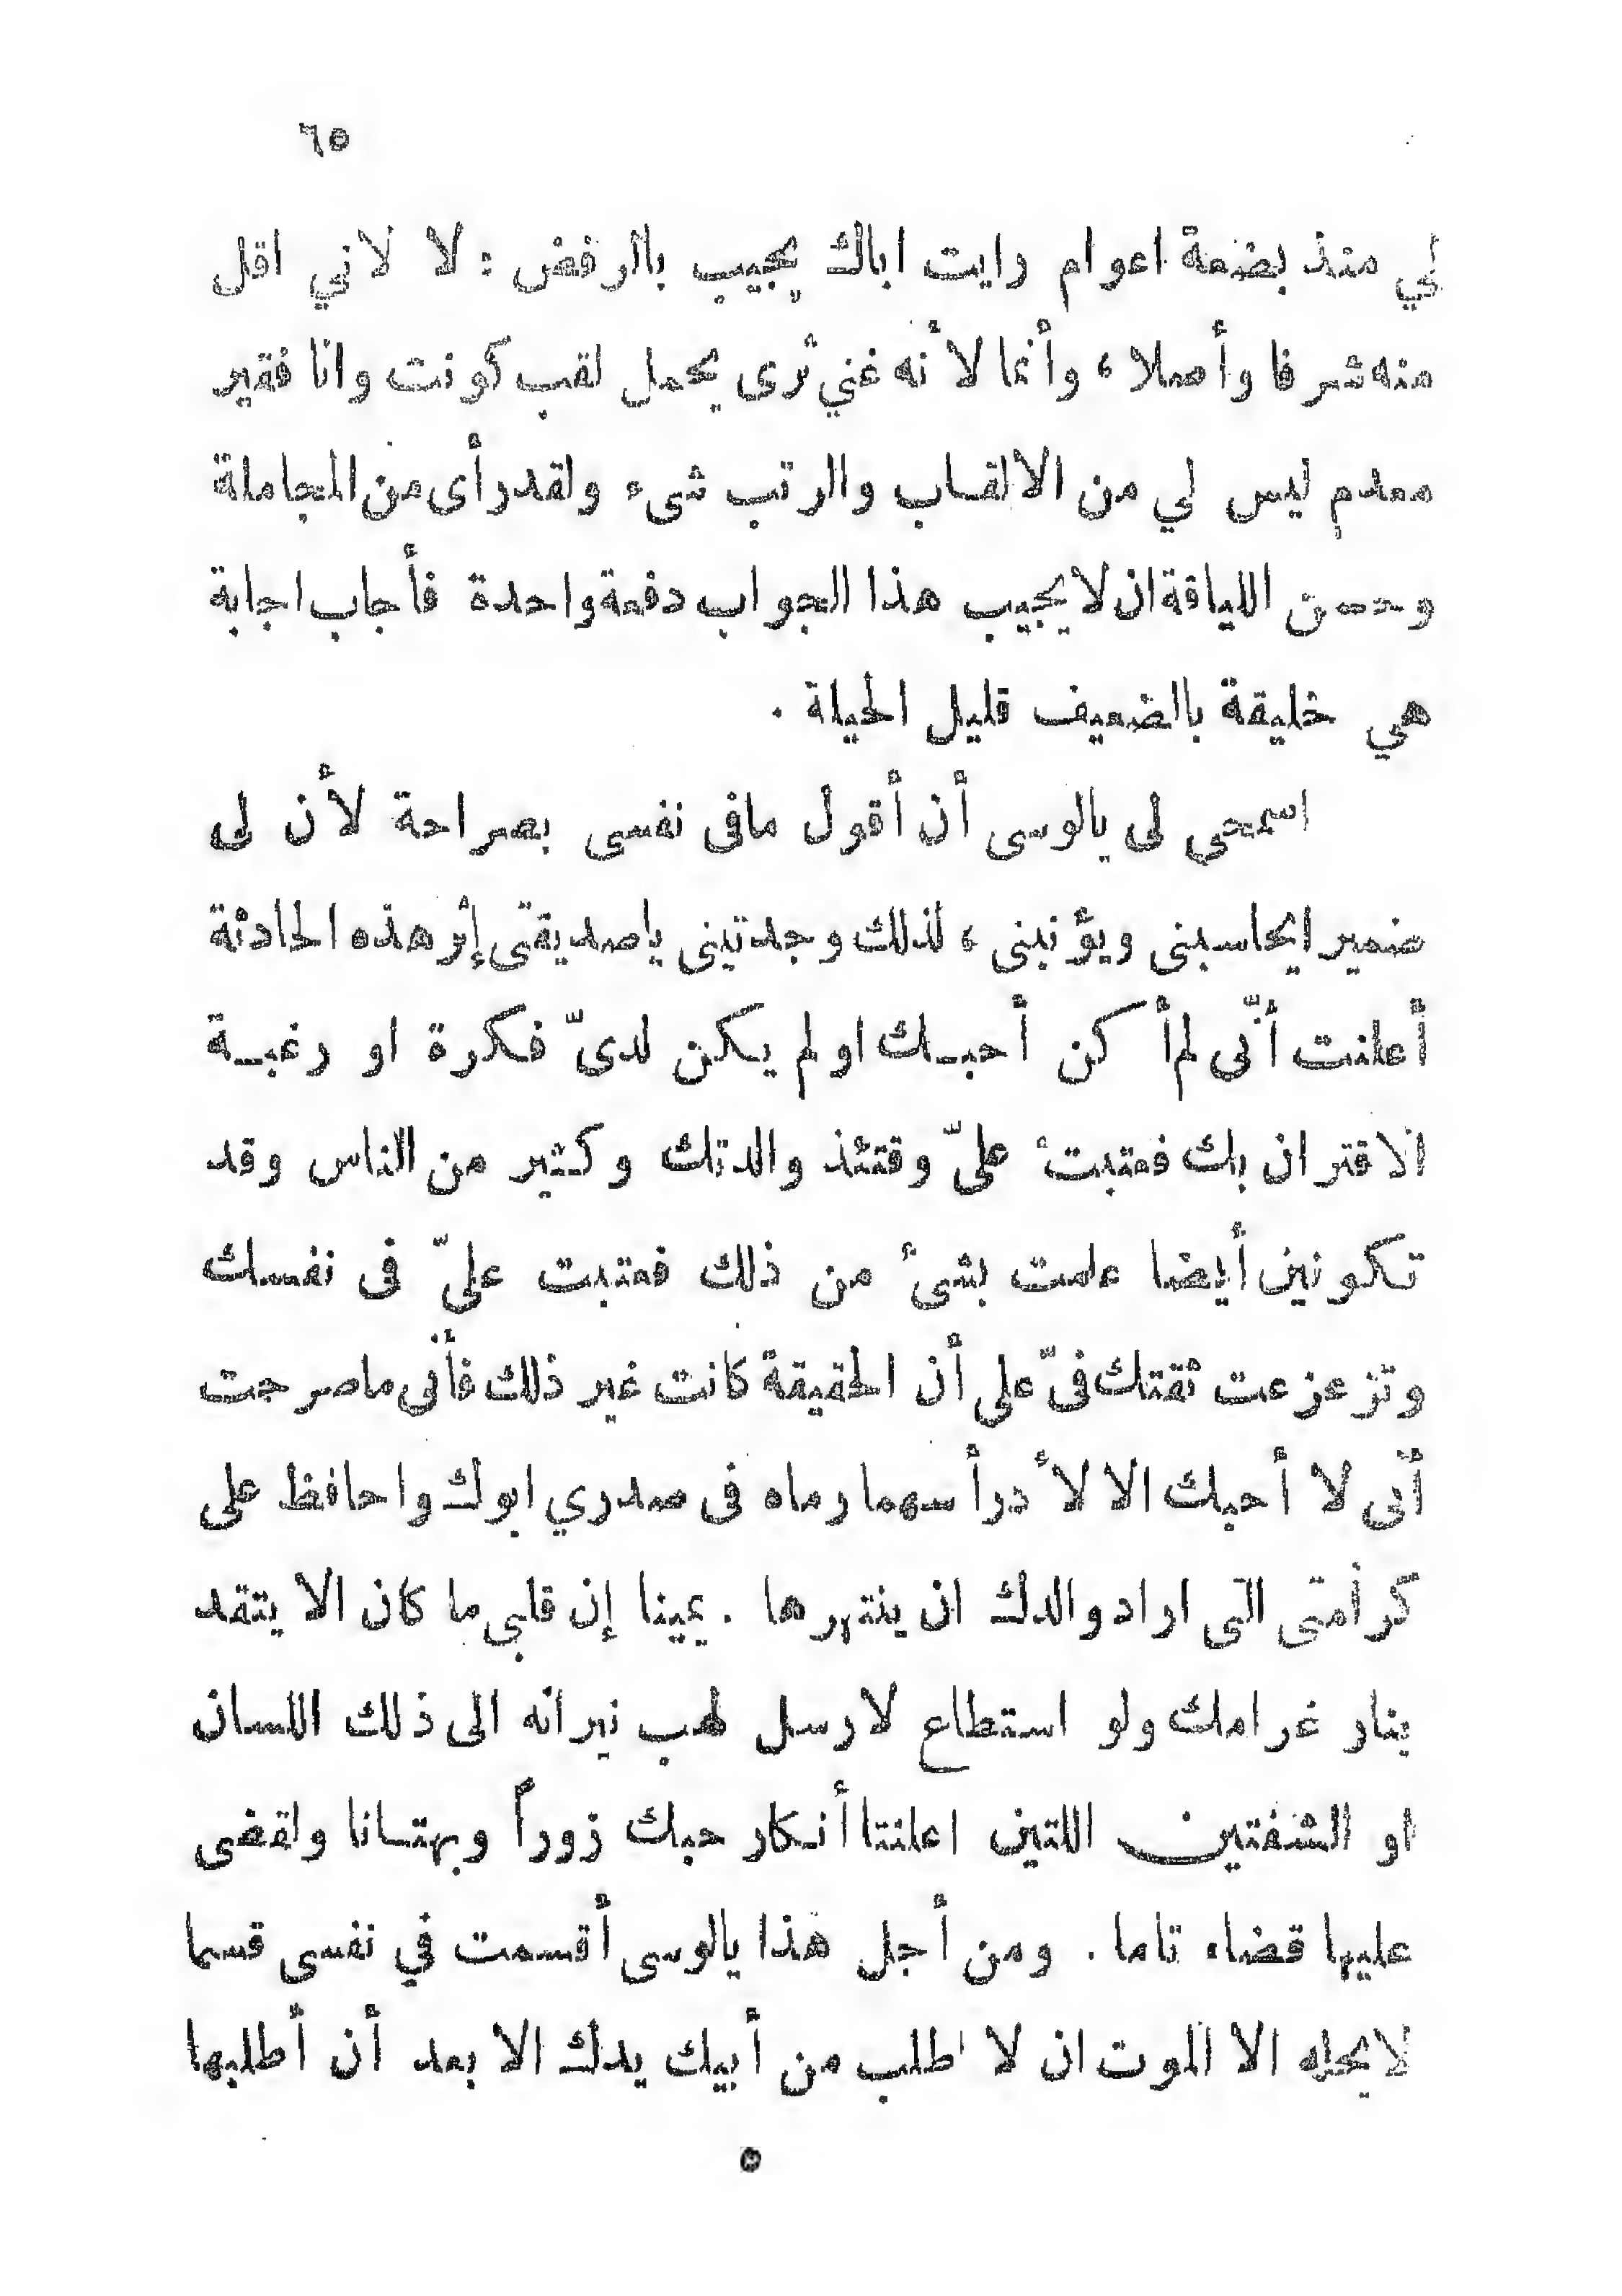 ٦٥
لي منذ بضعة اعوام رايت اباك يجيب بالرفض : لا لاني اقل
منه شرفا وأصلا ، وأنما لأنه غني ثرى يحمل لقب كونت وانا فقير
معدم ليس لي من الالقاب والرتب شىء ولقد رأى من المجاملة
وحسن اللياقة ان لا يجيب هذا الجواب دفعة واحدة فأجاب اجابة
هي خليقة بالضعيف قليل الحيلة .
اسمحي لى يالوسى أن أقول مافى نفسى بصراحة لأن لى
ضميرا يحاسبنى ويؤنبنى ، لذلك وجدتينى ياصديقتى إثر هذه الحادثة
أعلنت أنّى لم أكن أحبك او لم يكن لدىّ فكرة او رغبة
الاقتران بك فعتبت علىّ وقتئذ والدتك وكثير من الناس وقد
تكونين أيضا علمت بشئ من ذلك فعتبت علىّ فى نفسك
وتزعزعت ثقتك فىّ على أن الحقيقة كانت غير ذلك فأنى ماصرحت
أنى لا أحبك الا لأدرأ سهما رماه فى صدري ابوك واحافظ على
كرامتى التى اراد والدك ان ينتهرها . يمينا إن قلبي ما كان الا يتقد
بنار غرامك ولو استطاع لارسل لهب نيرانه الى ذلك اللسان
او الشفتين اللتين اعلنتا أنكار حبك زوراً وبهتانا ولقضى
عليها قضاء تاما . ومن أجل هذا يالوسى أقسمت في نفسى قسما
لايحله الا الموت ان لا اطلب من أبيك يدك الا بعد أن أطلبها
٥